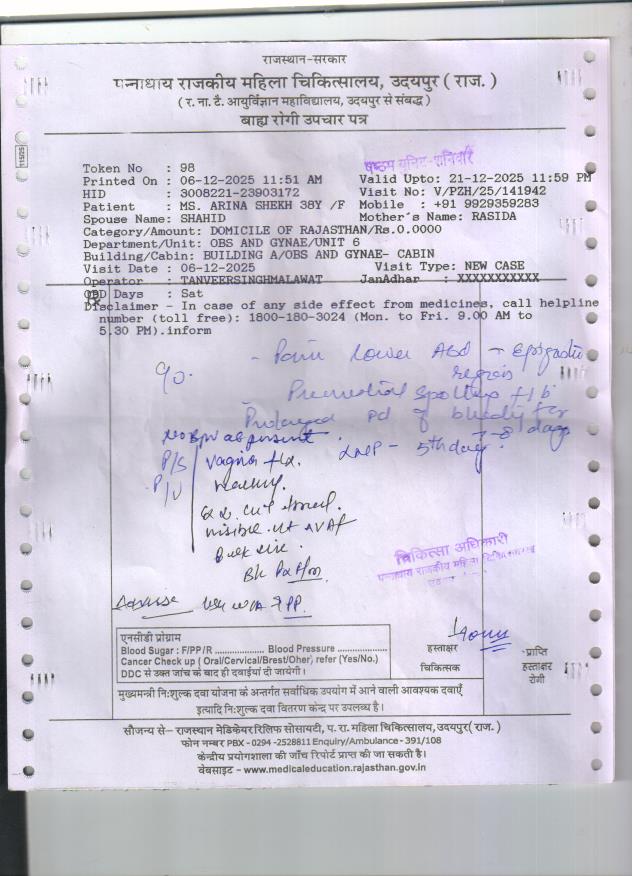 राजस्थान-सरकार
पन्नाधाय राजकीय महिला चिकित्सालय, उदयपुर ( राज. )
( र. ना. टै. आयुर्विज्ञान महाविद्यालय, उदयपुर से संबद्ध )
बाह्य रोगी उपचार पत्र
15/25
Token No : 98
षष्ठम यूनिट-शनिवार
Printed On : 06-12-2025 11:51 AM Valid Upto: 21-12-2025 11:59 PM
HID : 3008221-23903172 Visit No: V/PZH/25/141942
Patient : MS. ARINA SHEKH 38Y /F Mobile : +91 9929359283
Spouse Name: SHAHID Mother's Name: RASIDA
Category/Amount: DOMICILE OF RAJASTHAN/Rs.0.0000
Department/Unit: OBS AND GYNAE/UNIT 6
Building/Cabin: BUILDING A/OBS AND GYNAE- CABIN
Visit Date : 06-12-2025 Visit Type: NEW CASE
Operator : TANVEERSINGHMALAWAT JanAdhar : XXXXXXXXXXX
OBD Days : Sat
Disclaimer - In case of any side effect from medicines, call helpline
number (toll free): 1800-180-3024 (Mon. to Fri. 9.00 AM to
5.30 PM).inform
- Pain lower Abd
Premenstrual spotting f/b
Prolonged Pd of bleeding for
7-8 days
LMP - 5th day
P/S vagina
P/V
Advise
चिकित्सा अधिकारी
पन्नाधाय राजकीय महिला चिकित्सालय
एनसीडी प्रोग्राम
Blood Sugar : F/PP/R .................... Blood Pressure ..................
Cancer Check up ( Oral/Cervical/Brest/Oher) refer (Yes/No.)
DDC से उक्त जांच के बाद ही दवाईयां दी जायेगी।
हस्ताक्षर
चिकित्सक
प्राप्ति
हस्ताक्षर
रोगी
मुख्यमन्त्री नि:शुल्क दवा योजना के अन्तर्गत सर्वाधिक उपयोग में आने वाली आवश्यक दवाएँ
इत्यादि नि:शुल्क दवा वितरण केन्द्र पर उपलब्ध है।
सौजन्य से– राजस्थान मेडिकेयर रिलिफ सोसायटी, प. रा. महिला चिकित्सालय, उदयपुर( राज. )
फोन नम्बर PBX - 0294 -2528811 Enquiry/Ambulance - 391/108
केन्द्रीय प्रयोगशाला की जाँच रिपोर्ट प्राप्त की जा सकती है।
वेबसाइट - www.medicaleducation.rajasthan.gov.in